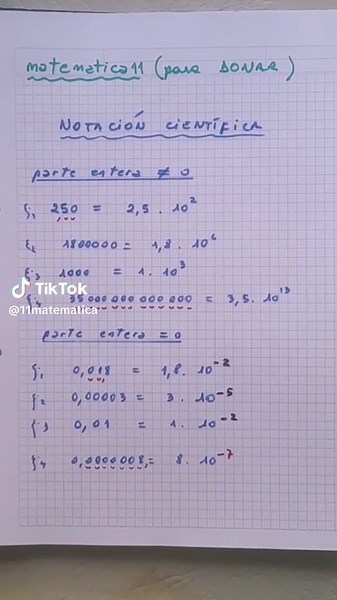 matematica11 (para DONAR)
NOTACIÓN CIENTÍFICA
parte entera ≠ 0
ξ₁ 250 = 2,5 . 10²
ξ₂ 1800000 = 1,8 . 10⁶
ξ₃ 1000 = 1 . 10³
TikTok
ξ₄ 35 000 000 000 000 = 3,5 . 10¹³
@11matematica
parte entera = 0
ξ₁ 0,018 = 1,8 . 10⁻²
ξ₂ 0,00003 = 3 . 10⁻⁵
ξ₃ 0,01 = 1 . 10⁻²
ξ₄ 0,0000008, = 8 . 10⁻⁷